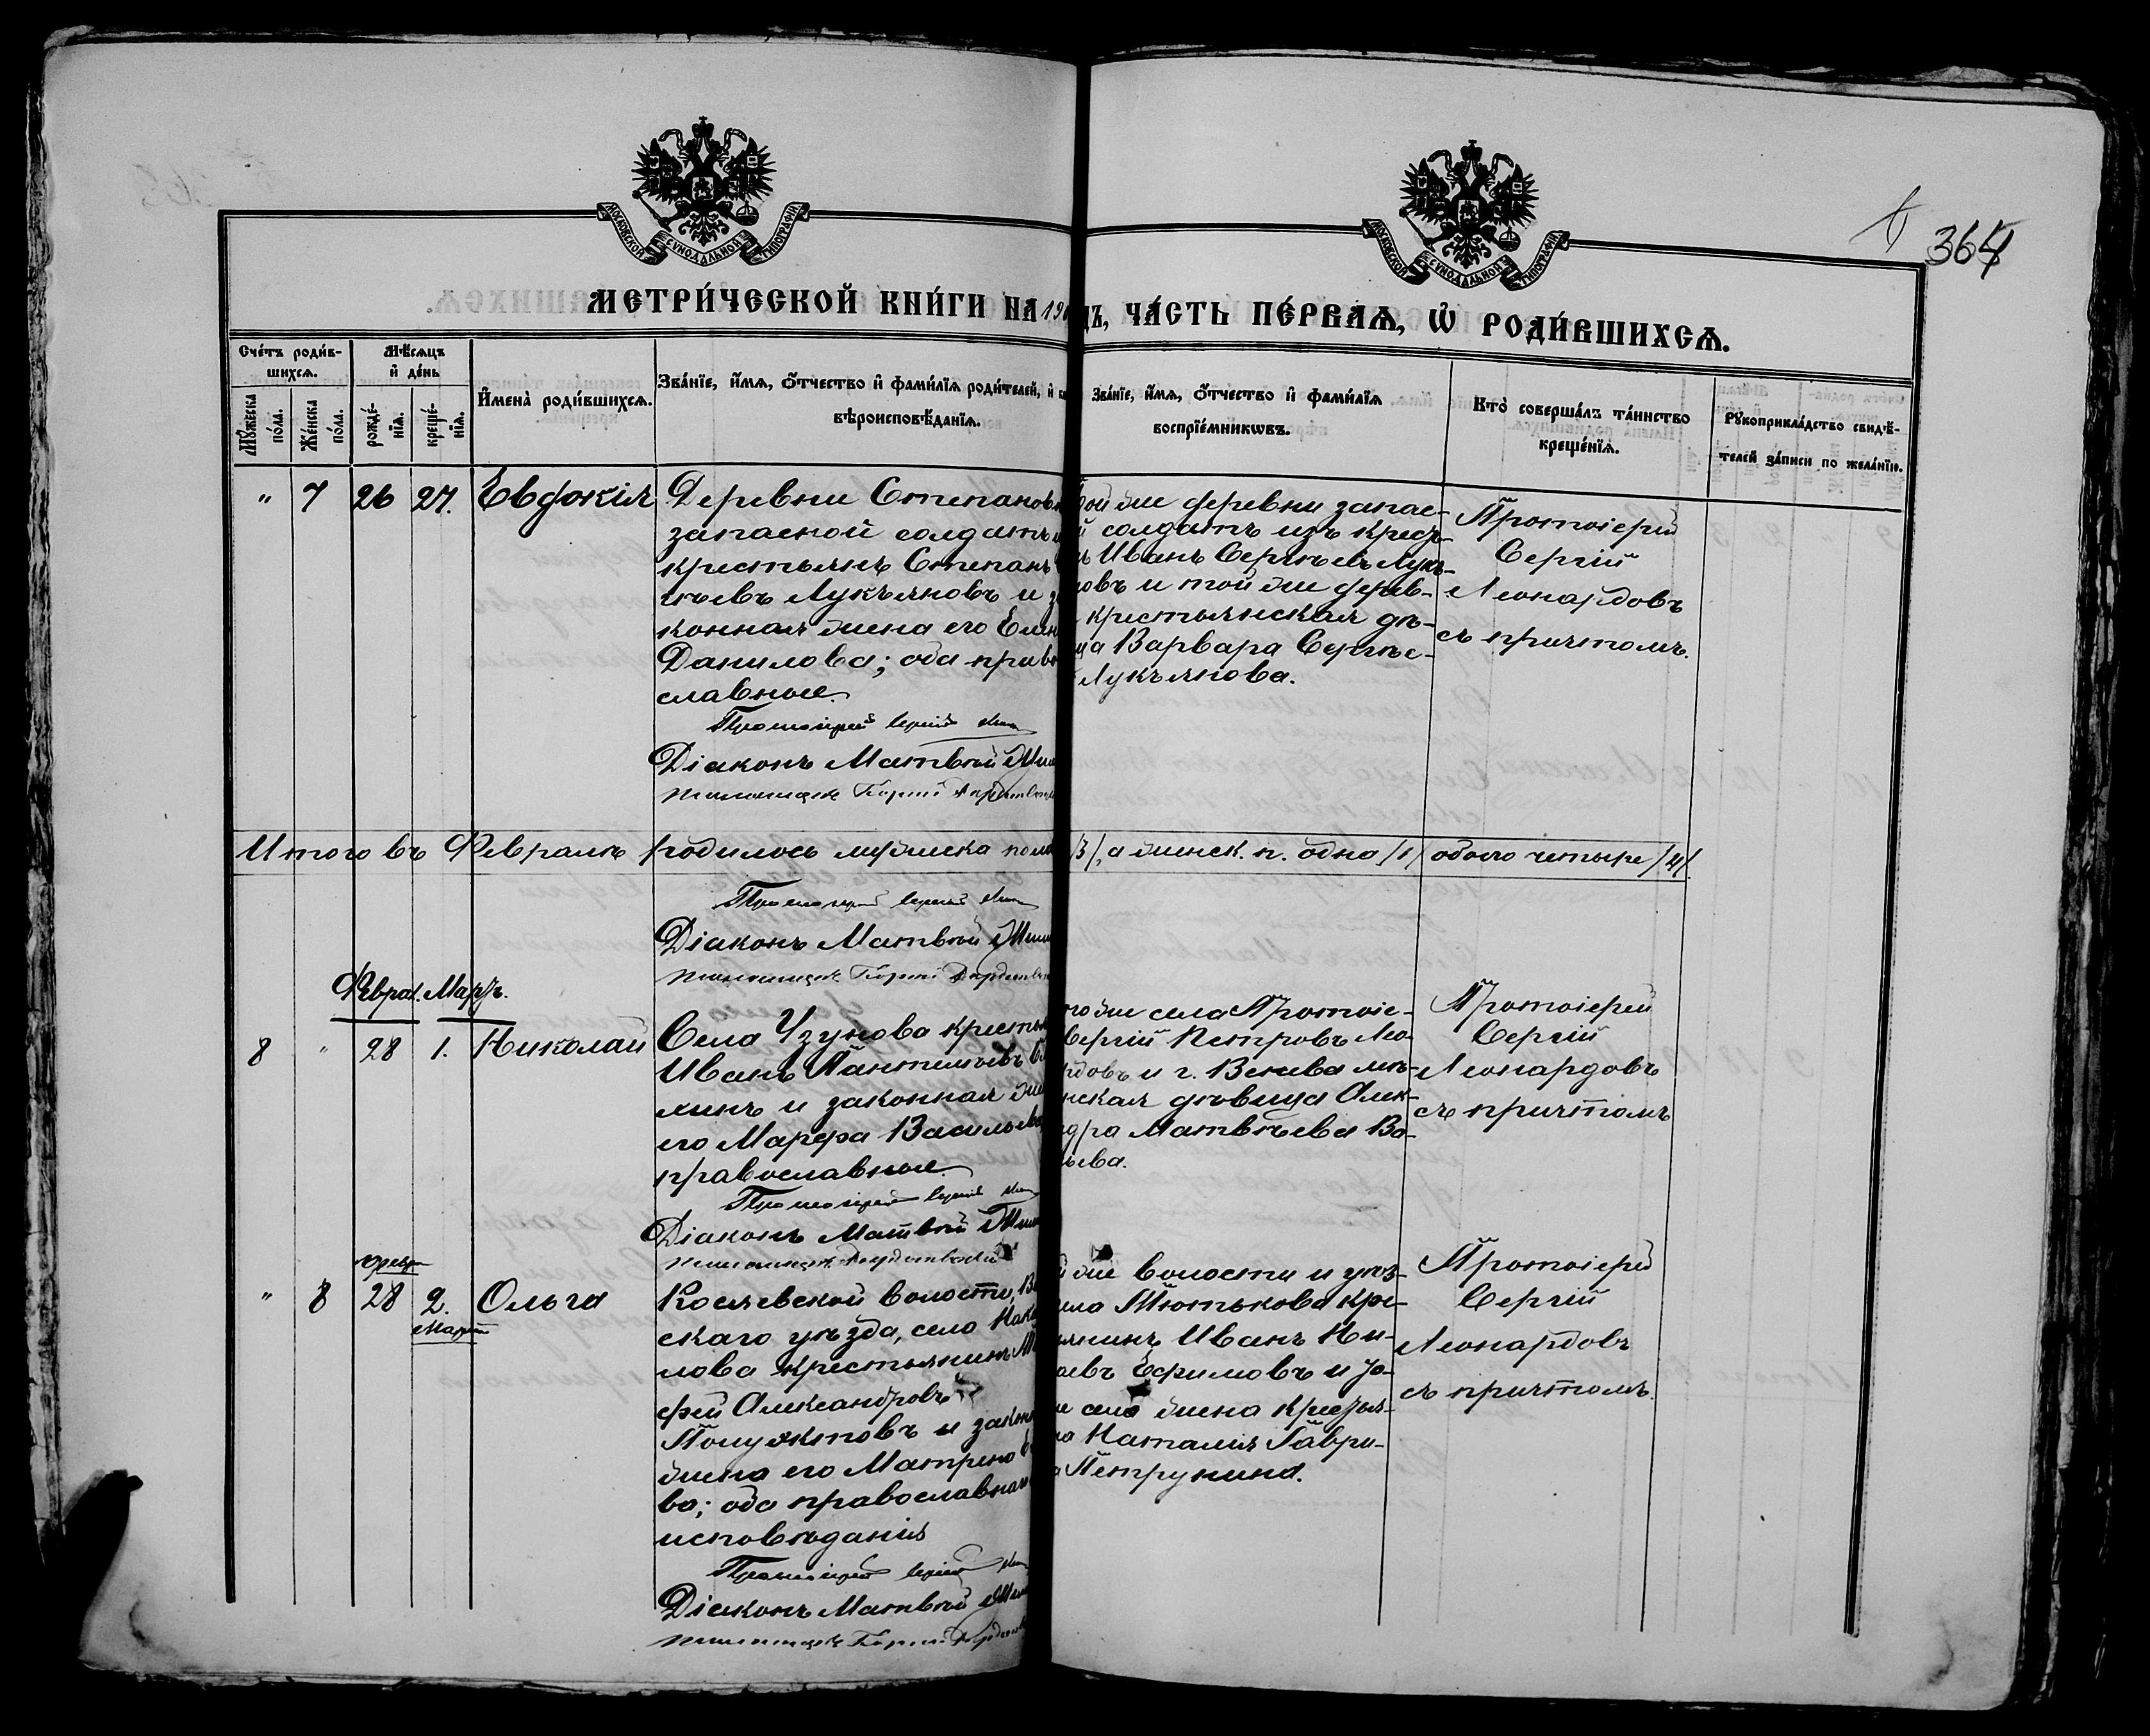 МОСКОВСКОЙ СѴНОДАЛЬНОЙ ТИПОГРАФІИ
МОСКОВСКОЙ СѴНОДАЛЬНОЙ ТИПОГРАФІИ
364
МЕТРИ́ЧЕСКОЙ КНИ́ГИ НА 19
ДЪ, ЧА́СТЬ ПЕ́РВАѦ, Ѡ РОДИ́ВШИХСѦ.
Сче́тъ роди́в-
шихсѧ.
Мꙋ́жеска
по́ла.
Же́нска
по́ла.
Мѣ́сѧцъ
и҆ де́нь
рожде́-
нїѧ.
креще́-
нїѧ.
И҆мена̀ роди́вшихсѧ.
Зва́нїе, и҆́мѧ, ѻ҆́тчество и҆ фами́лїѧ роди́телей, и҆
вѣроисповѣ́данїѧ.
Зва́нїе, и҆́мѧ, ѻ҆́тчество и҆ фами́лїѧ
воспрїе́мникѡвъ.
Кто̀ соверша́лъ та́инство
креще́нїѧ.
Рꙋкоприкла́дство свидѣ́-
телей за́писи по жела́нїю.
" 7 26 27. Евдокія
Деревни Степанов
запасной солдатъ
крестьянъ Степанъ
гѣевъ Лукьяновъ и з
конная жена его Елен
Данилова; оба право
славные.
Протоіерей Сергій
Діаконъ Матвѣй
Псаломщикъ
ой же деревни запас-
й солдатъ изъ крест-
ъ Иванъ Сергѣевъ Лукь-
новъ и той же дерев-
крестьянская дѣ-
ца Варвара Сергѣе-
Лукьянова.
Протоіерей
Сергій
Леонардовъ
съ причтомъ.
Итого въ Февралѣ родилось мужеска пола /3/, а женск. п. одна /1/ обоего четыре /4/.
Протоіерей Сергій
Діаконъ Матвѣй
Псаломщикъ
Феврал. Мартъ.
8 " 28 1. Николай
Села Узунова крестья
Иванъ Пантелѣевъ
линъ и законная же
его Марфа Васильева
православные.
Протоіерей Сергій
Діаконъ Матвѣй
Псаломщикъ
го же села Протоіе-
Сергій Петровъ Лео-
рдовъ и г. Венева мѣ-
нская дѣвица Алек-
ндра Матвѣева Во-
ьева.
Протоіерей
Сергій
Леонардовъ
съ причтомъ
Февр
" 8 28 2. Ольга
Мартъ
Косяевской волости, Ве
скаго уѣзда, села
лова крестьянинъ
фей Александровъ
Полуэктовъ и закон
жена его Матрена
ва; оба православнаго
исповѣданія
Протоіерей Сергій
Діаконъ Матвѣй
Псаломщикъ
же волости и уѣз-
ела Тютькова кре-
янинъ Иванъ Ни-
аевъ Ефимовъ и то-
е села жена крестья-
на Наталія Гаври-
а Петрунина.
Протоіерей
Сергій
Леонардовъ
съ причтомъ.